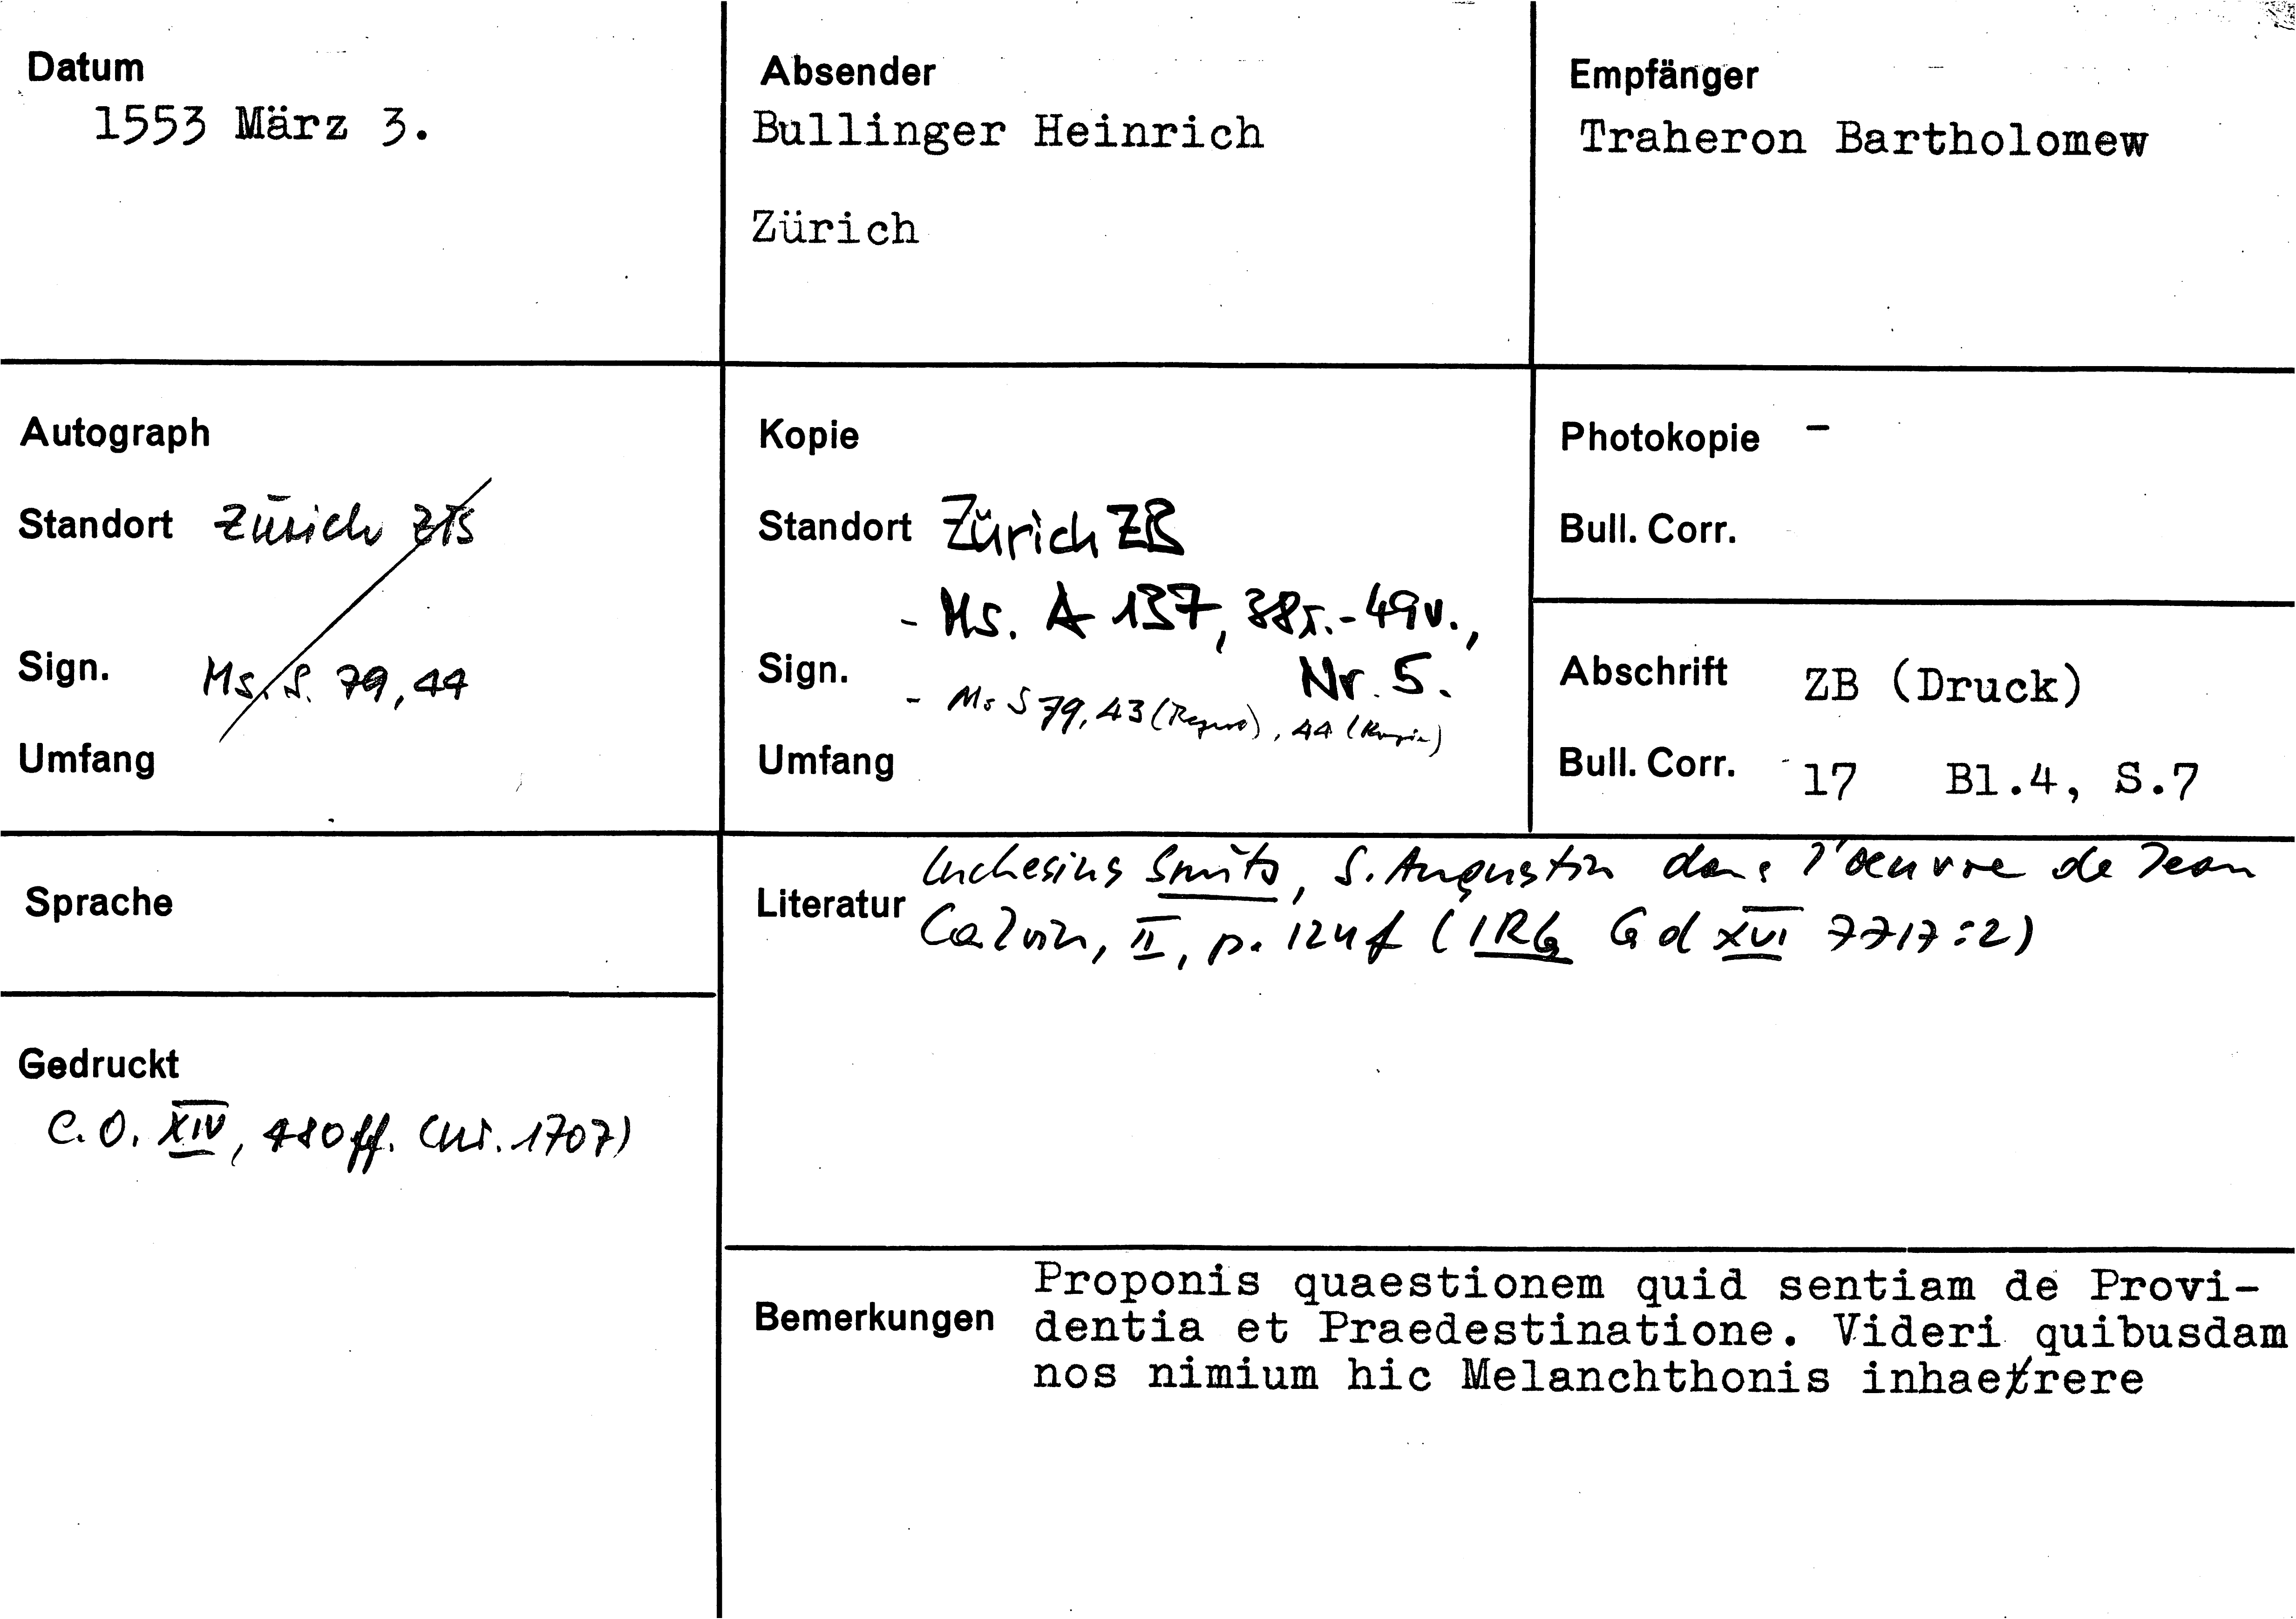 Datum
1553 März 3.
Absender
Bullinger Heinrich
Zürich
Empfänger
Traheron Bartholomew
Autograph
Standort Zürich ZB
Sign. Ms. S. 79, 44
Umfang
Kopie
Standort Zürich ZB
- Ms. A 137, 38r.-49v.,
Sign. Nr. 5.
- Ms S 79, 43 (Regest), 44 (Kopie)
Umfang
Photokopie -
Bull. Corr.
Abschrift ZB (Druck)
Bull. Corr. 17 Bl.4, S.7
Sprache
Gedruckt
C.O. XIV, 480ff. (Nr. 1707)
Literatur Luchesius Smits, S. Augustin dans l'oeuvre de Jean
Calvin, II, p. 124f (IRG Gd XVI 7717:2)
Bemerkungen
Proponis quaestionem quid sentiam de Provi-
dentia et Praedestinatione. Videri quibusdam
nos nimium hic Melanchthonis inhaerere